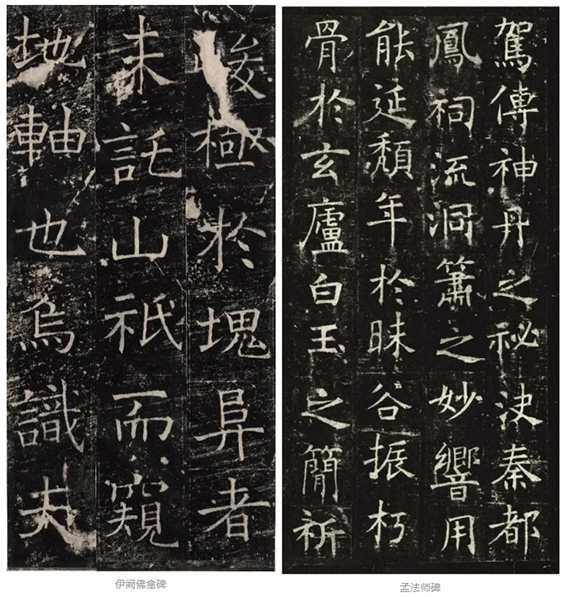 峻極於塊阜者
未託山祇而窺
地軸也焉識夫
伊阙佛龛碑
駕傳神丹之秘決秦都
鳳祠流洞簫之妙響用
能延頹年於昧谷振朽
骨於玄廬白玉之簡祈
孟法师碑